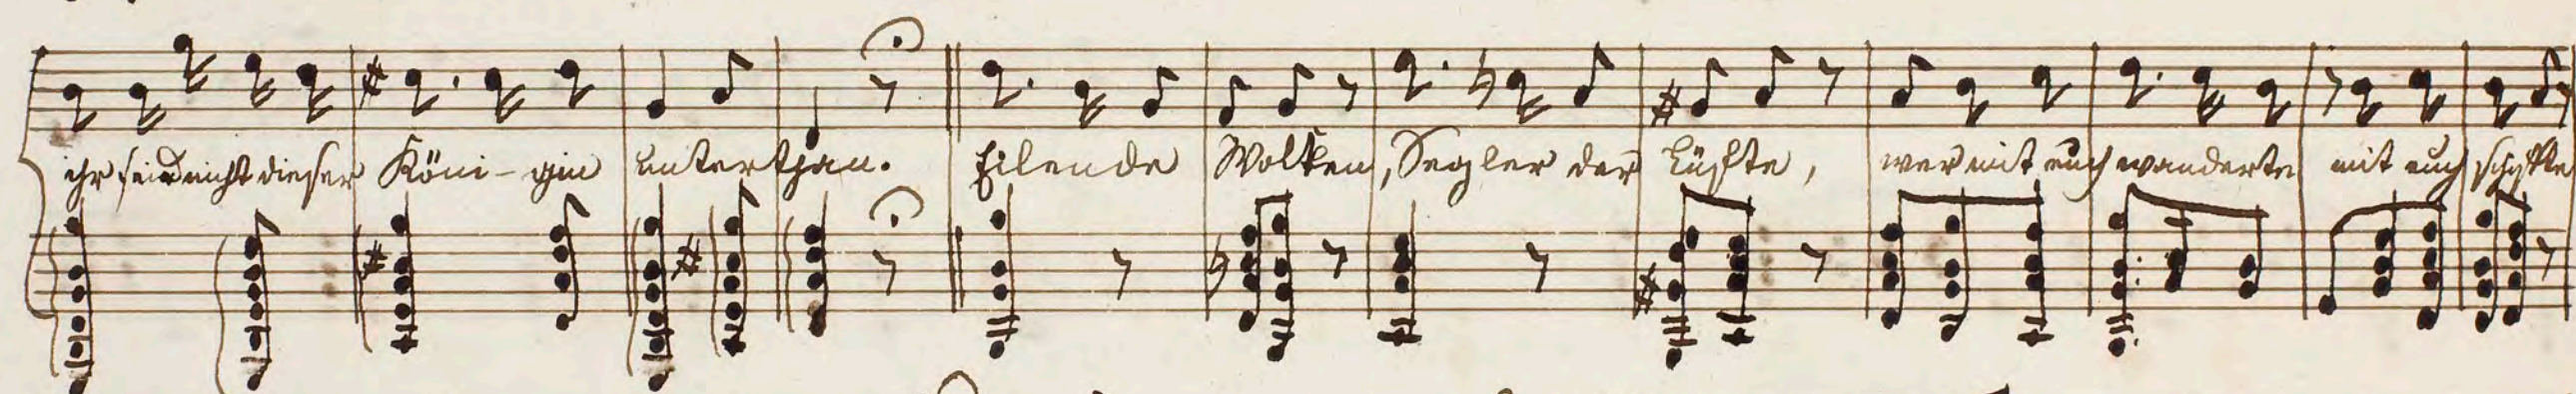 ihr seid nicht dieser Köni-gin unterthan. Eilende Wolken, Segler der Lüfte, wer mit euch wanderte mit euch schiffte